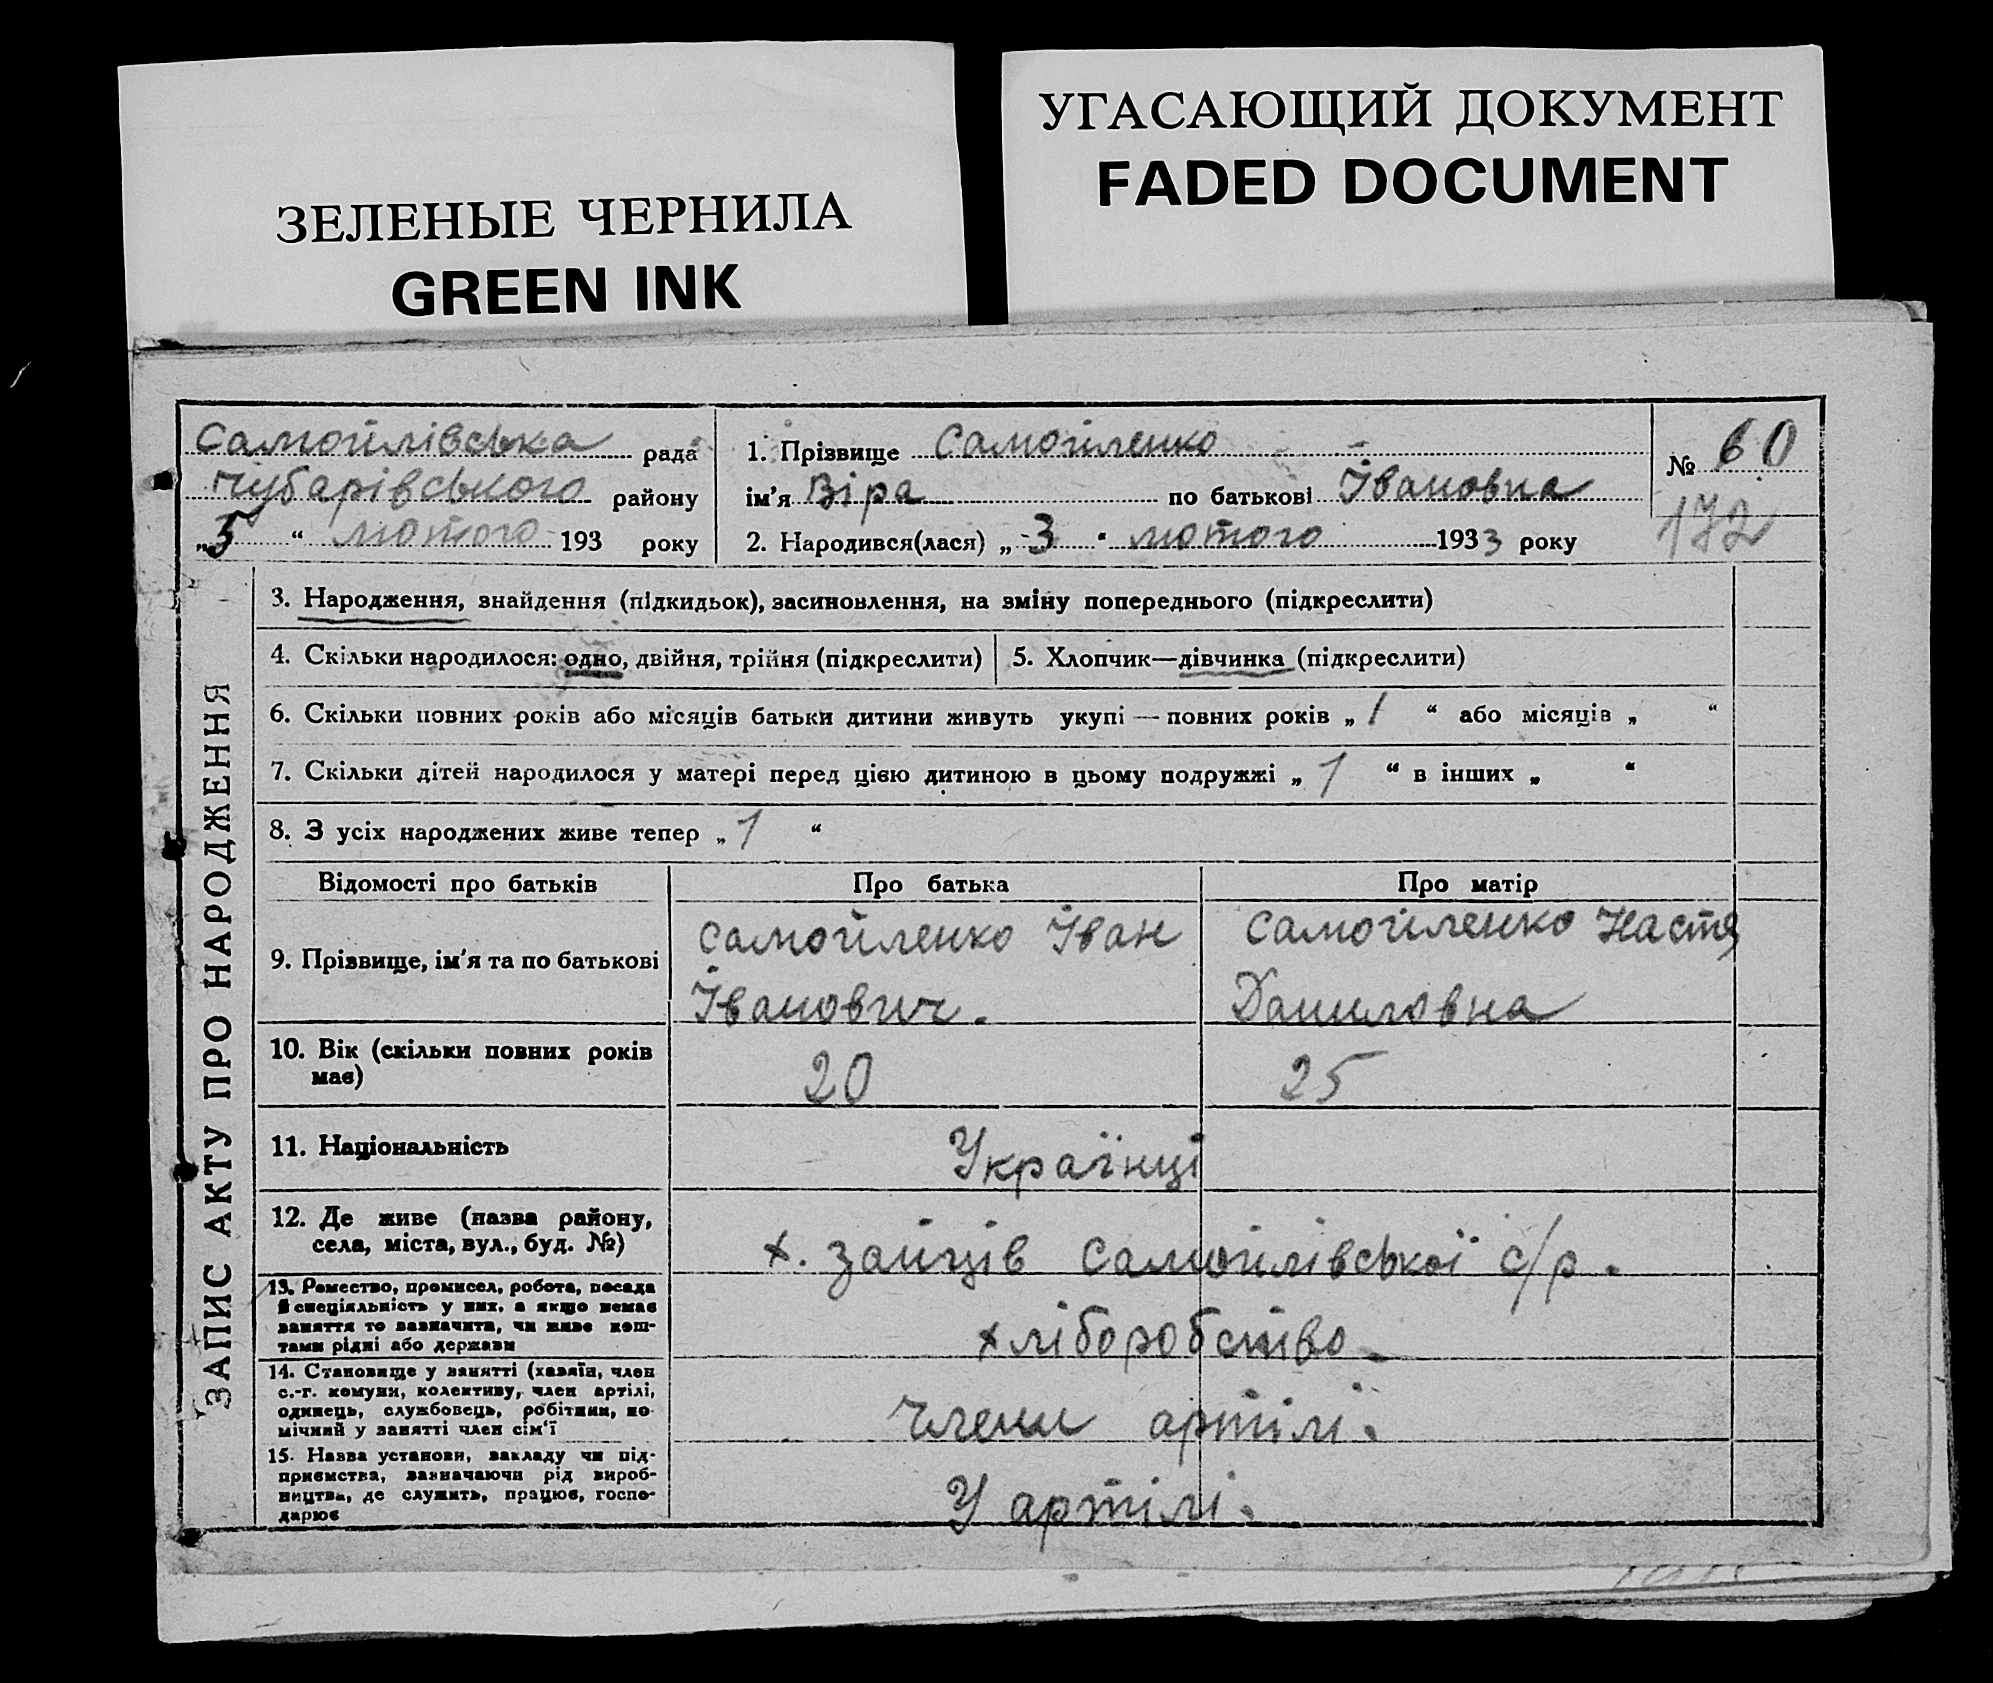 ЗЕЛЕНЫЕ ЧЕРНИЛА
GREEN INK
УГАСАЮЩИЙ ДОКУМЕНТ
FADED DOCUMENT
Самойлівська рада
Чубарівського району
„5“ лютого 193 року
1. Прізвище Самойленко
ім'я Віра по батькові Івановна
2. Народився(лася) „3“ лютого 1933 року
№ 60
172
ЗАПИС АКТУ ПРО НАРОДЖЕННЯ
3. Народження, знайдення (підкидьок), засиновлення, на зміну попереднього (підкреслити)
4. Скільки народилося: одно, двійня, трійня (підкреслити)
5. Хлопчик—дівчинка (підкреслити)
6. Скільки повних років або місяців батьки дитини живуть укупі — повних років „1“ або місяців „ “
7. Скільки дітей народилося у матері перед цією дитиною в цьому подружжі „1“ в інших „ “
8. З усіх народжених живе тепер „1“
Відомості про батьків Про батька Про матір
9. Прізвище, ім'я та по батькові
Самойленко Іван
Іванович.
Самойленко Настя
Даниловна
10. Вік (скільки повних років
має)
20
25
11. Національність
Українці
12. Де живе (назва району,
села, міста, вул., буд. №)
х. Зайців Самойлівської с/р.
13. Ремество, промисел, робота, посада
й спеціяльність у них, а якщо немає
заняття то зазначити, чи живе кош-
тами рідні або держави
хліборобство
14. Становище у занятті (хазяїн, член
с.-г. комуни, колективу, член артілі,
одинець, службовець, робітник, по-
мічний у занятті член сім'ї
члени артілі.
15. Назва установи, закладу чи під-
приємства, зазначаючи рід вироб-
ництва, де служить, працює, госпо-
дарює
У артілі.